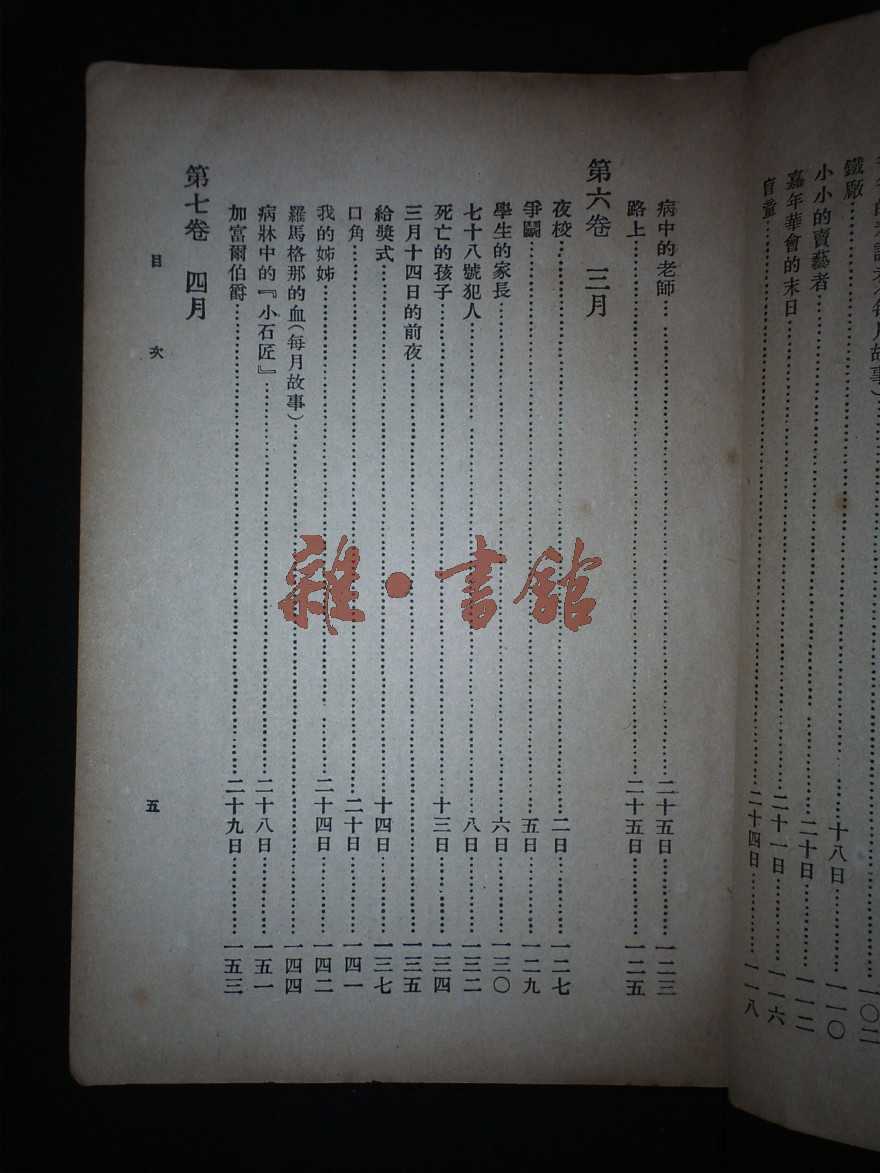 鐵廠……十八日……一一〇
小小的賣藝者……二十日……一一二
嘉年華會的末日……二十一日……一一六
盲童……二十四日……一一八
病中的老師……二十五日……一二三
路上……二十五日……一二五
第六卷 三月
夜校……二日……一二七
爭鬭……五日……一二九
學生的家長……六日……一三〇
七十八號犯人……八日……一三二
死亡的孩子……十三日……一三四
三月十四日的前夜……一三五
給獎式……十四日……一三七
口角……二十日……一四一
我的姊姊……二十四日……一四二
羅馬格那的血(每月故事)……一四四
病牀中的『小石匠』……二十八日……一五一
加富爾伯爵……二十九日……一五三
第七卷 四月
目 次 五
雜·書館